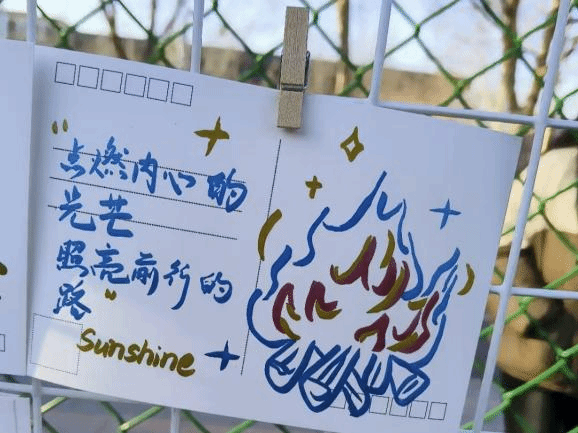 "点燃内心的
光芒
照亮前行的
路"
Sunshine